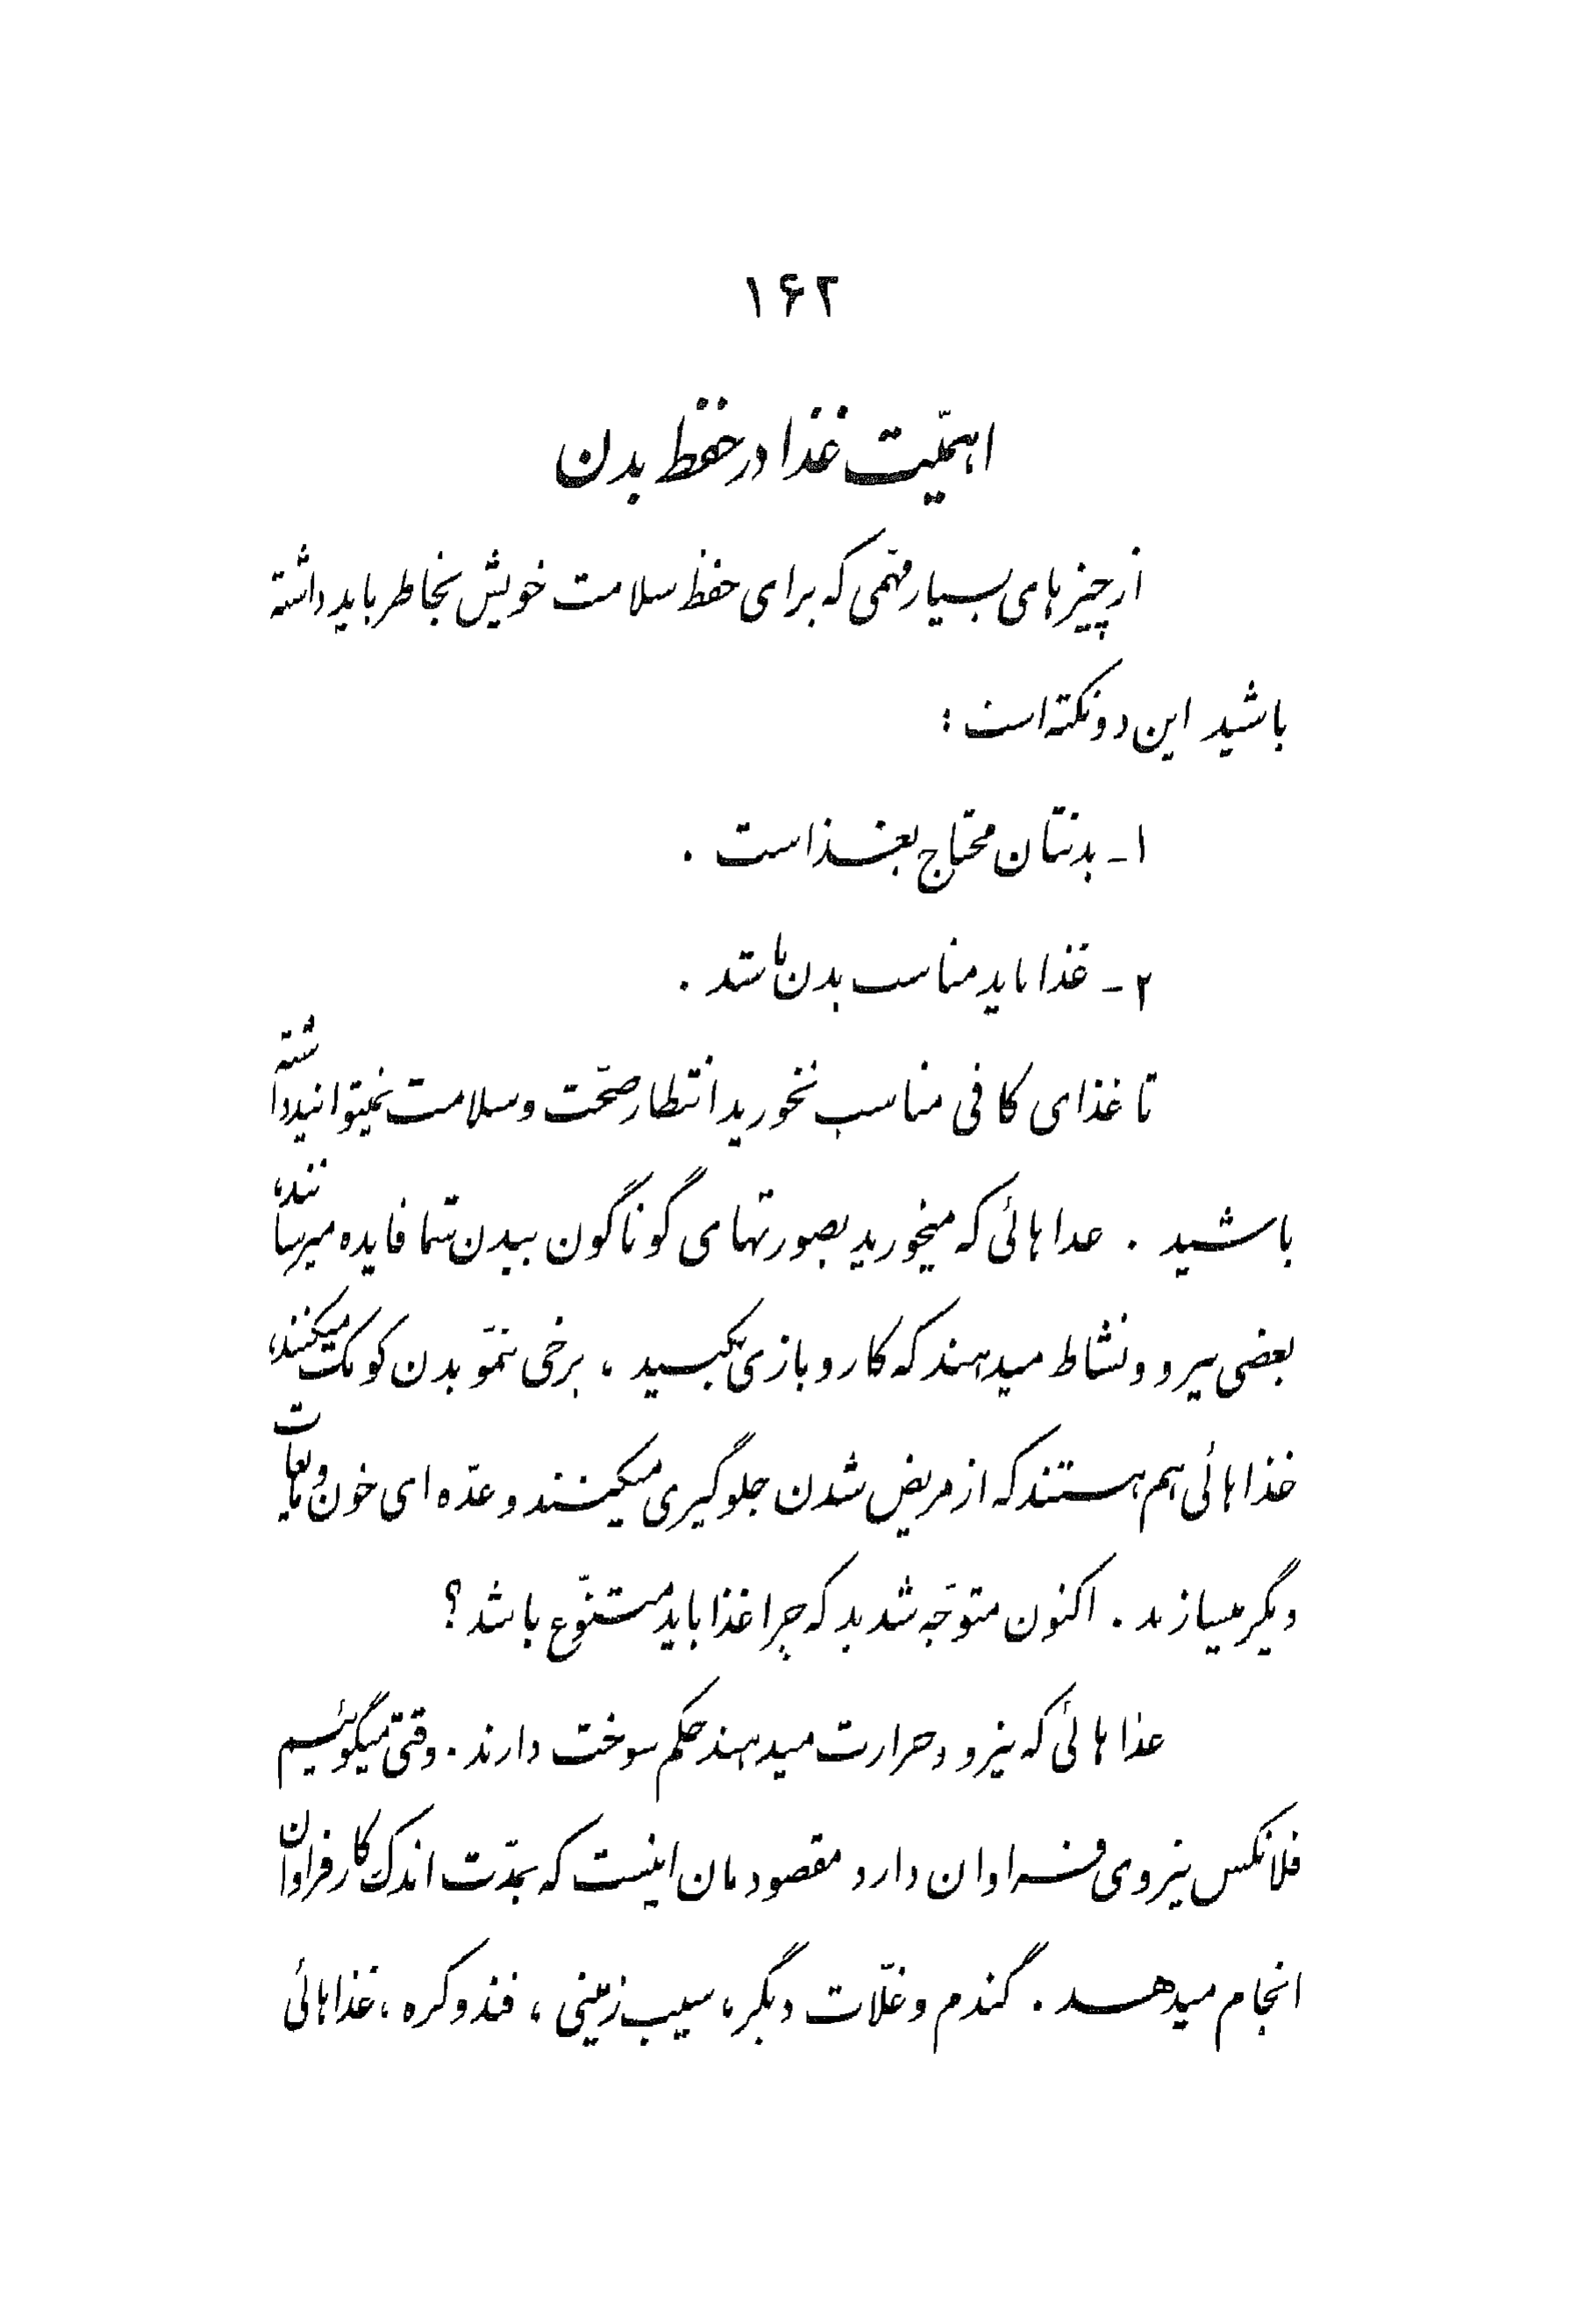 ۱۶۲
اهمّیت غذا در حفظ بدن
از چیزهای بسیار مهمی که برای حفظ سلامت خویش بخاطر باید داشته
باشید این دو نکته است :
۱ـ بدنتان محتاج بغذاست .
۲ـ غذا باید مناسب بدن باشد .
تا غذای کافی مناسب نخورید انتظار صحّت و سلامت نمیتوانید داشته
باشید . غذاهائی که میخورید بصورتهای گوناگون ببدن شما فایده میرسانند،
بعضی نیرو و نشاط میدهند که کار و بازی بکنید ، برخی بنموّ بدن کومک میکنند،
غذاهائی هم هستند که از مریض شدن جلوگیری میکنند و عدّه ای خون و مایعات
دیگر میسازند . اکنون متوجّه شدید که چرا غذا باید متنوّع باشد ؟
غذاهائی که نیرو و حرارت میدهند حکم سوخت دارند . وقتی میگوئیم
فلانکس نیروی فراوان دارد مقصودمان اینست که بمدّت اندک کار فراوان
انجام میدهد . گندم و غلّات دیگر ، سیب زمینی ، قند و کره ، غذاهائی